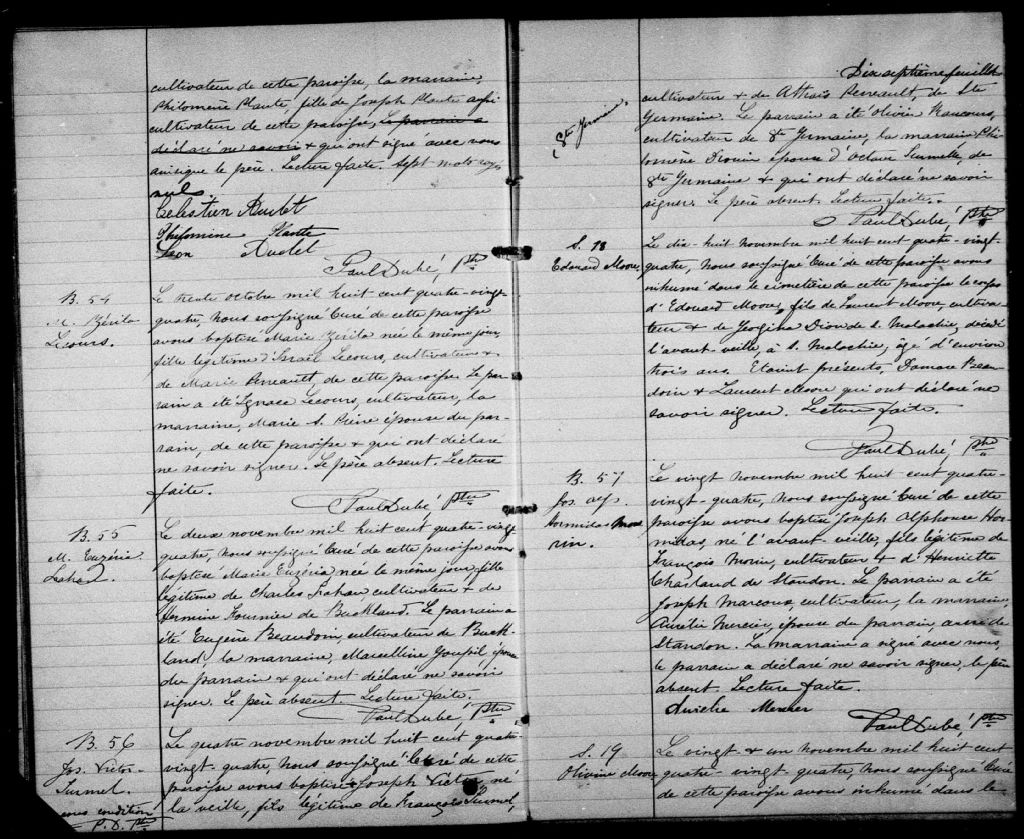 cultivateur de cette paroisse, la marraine,
Philomène Plante, fille de Joseph Plante agri
cultivateur de cette paroisse, le parrain a
déclaré ne savoir & qui ont signé avec nous
ainsi que le père. Lecture faite. Sept mots rayés
nul
Celestien Audet
Philomine Plante
Leon Audet
Paul Dubé, Ptre
B. 54
M. Zérila
Lecours.
Le trente octobre mil huit cent quatre-vingt
quatre, Nous soussigné Curé de cette paroisse
avons baptisé Marie Zérila née le même jour,
fille légitime d'Israël Lecours, cultivateur &
de Marie Perreault, de cette paroisse. Le par
rain a été Ignace Lecours, cultivateur, la
marraine, Marie S. Pierre épouse du par-
rain, de cette paroisse & qui ont déclaré
ne savoir signer. Le père absent. Lecture
faite.
Paul Dubé, Ptre
B. 55
M. Eugéria
Le deux novembre mil huit cent quatre-vingt
quatre, nous soussigné Curé de cette paroisse avons
baptisé Marie Eugéria née le même jour, fille
légitime de Charles cultivateur & de
Hermine Fournier de Buckland. Le parrain a
été Eugène Beaudoin, cultivateur de Buck-
land, la marraine, Marcelline Goupil épouse
du parrain & qui ont déclaré ne savoir
signer. Le père absent. Lecture faite.
Paul Dubé, Ptre
B. 56
Jos. Victor
sous condition
P. D. Ptre
Le quatre novembre mil huit cent quatre-
vingt-quatre, nous soussigné Curé de cette
paroisse avons baptisé Joseph Victor, né
la veille, fils légitime de François
Dix septième feuillet
Ste Germaine
cultivateur & de Perreault, de Ste
Germaine. Le parrain a été Olivier Rancourt,
cultivateur de Ste Germaine, la marraine Phi
lomène Drouin épouse d'Octave de
Ste Germaine & qui ont déclaré ne savoir
signer. Le père absent. Lecture faite.
Paul Dubé, Ptre
S. 18
Edouard Moore
Le dix-huit novembre mil huit cent quatre-vingt
quatre, Nous soussigné Curé de cette paroisse avons
inhumé dans le cimetière de cette paroisse le corps
d'Edouard Moore, fils de Laurent Moore, cultiva-
teur & de Georgina Dion de S. Malachie, décédé
l'avant-veille, à S. Malachie, âgé d'environ
trois ans. Etaient présents, Damase Beau
doin & Laurent Moore qui ont déclaré ne
savoir signer. Lecture faite.
Paul Dubé, Ptre
B. 57
Jos. Alp.
Hormidas Mo
rin.
Le vingt novembre mil huit cent quatre-
vingt-quatre, Nous soussigné Curé de cette
paroisse avons baptisé Joseph Alphonse Hor-
midas, né l'avant-veille, fils légitime de
François Morin, cultivateur & d'Henriette
Chastand de Standon. Le parrain a été
Joseph Marcoux, cultivateur, la marraine,
Aurélie Mercier, épouse du parrain, aussi de
Standon. La marraine a signé avec nous,
le parrain a déclaré ne savoir signer, le père
absent. Lecture faite.
Aurelie Mercier
Paul Dubé, Ptre
S. 19
Olivine Moore
Le vingt & un novembre mil huit cent
quatre-vingt-quatre, Nous soussigné Curé
de cette paroisse avons inhumé dans le